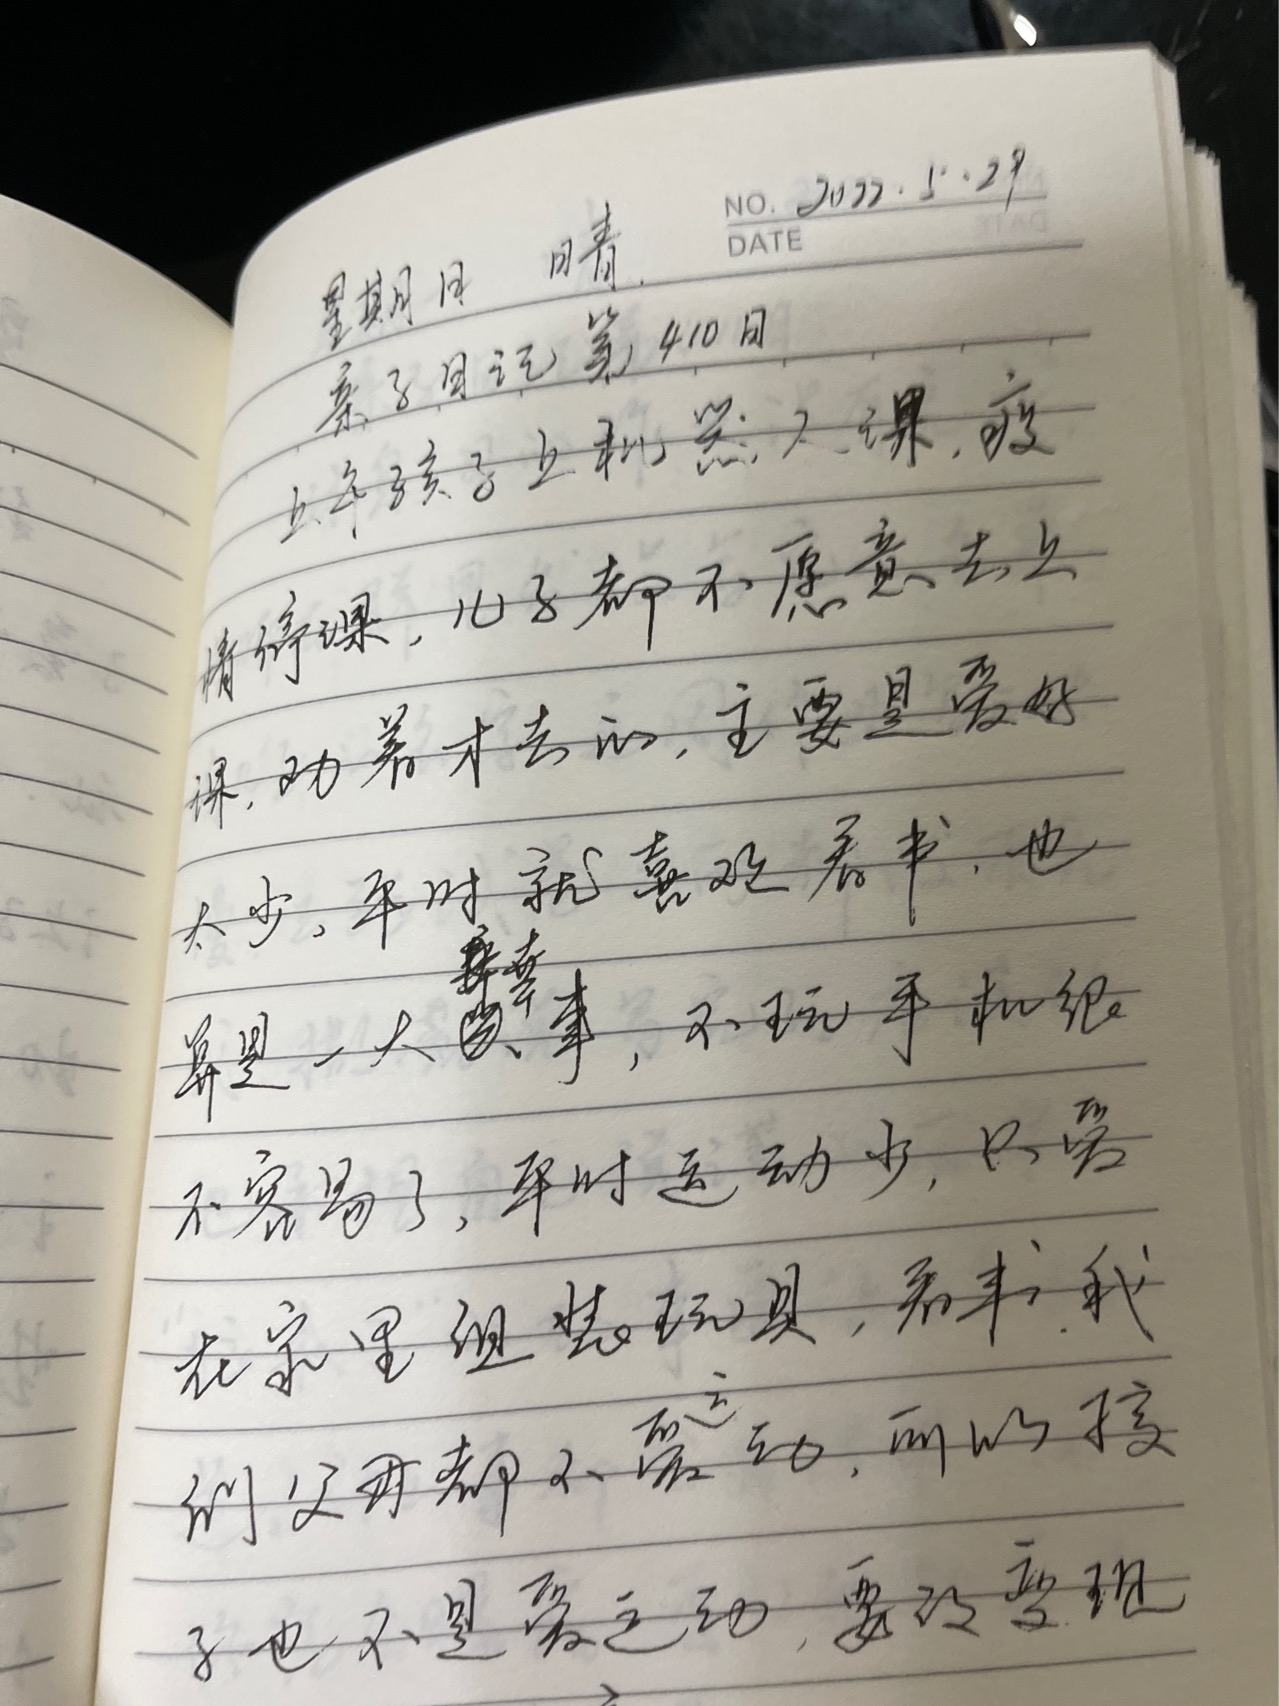 NO. 2022.5.29
DATE
星期日 晴.
亲子日记第410日
上午孩子上机器人课,疫
情停课,儿子都不愿意去上
课,劝着才去的,主要是爱好
太少,平时就喜欢看书,也
算是一大幸事,不玩手机很
不容易了,平时运动少,只爱
在家里组装玩具,看书,我
们父母都不爱运动,所以孩
子也不是爱运动,要改变现